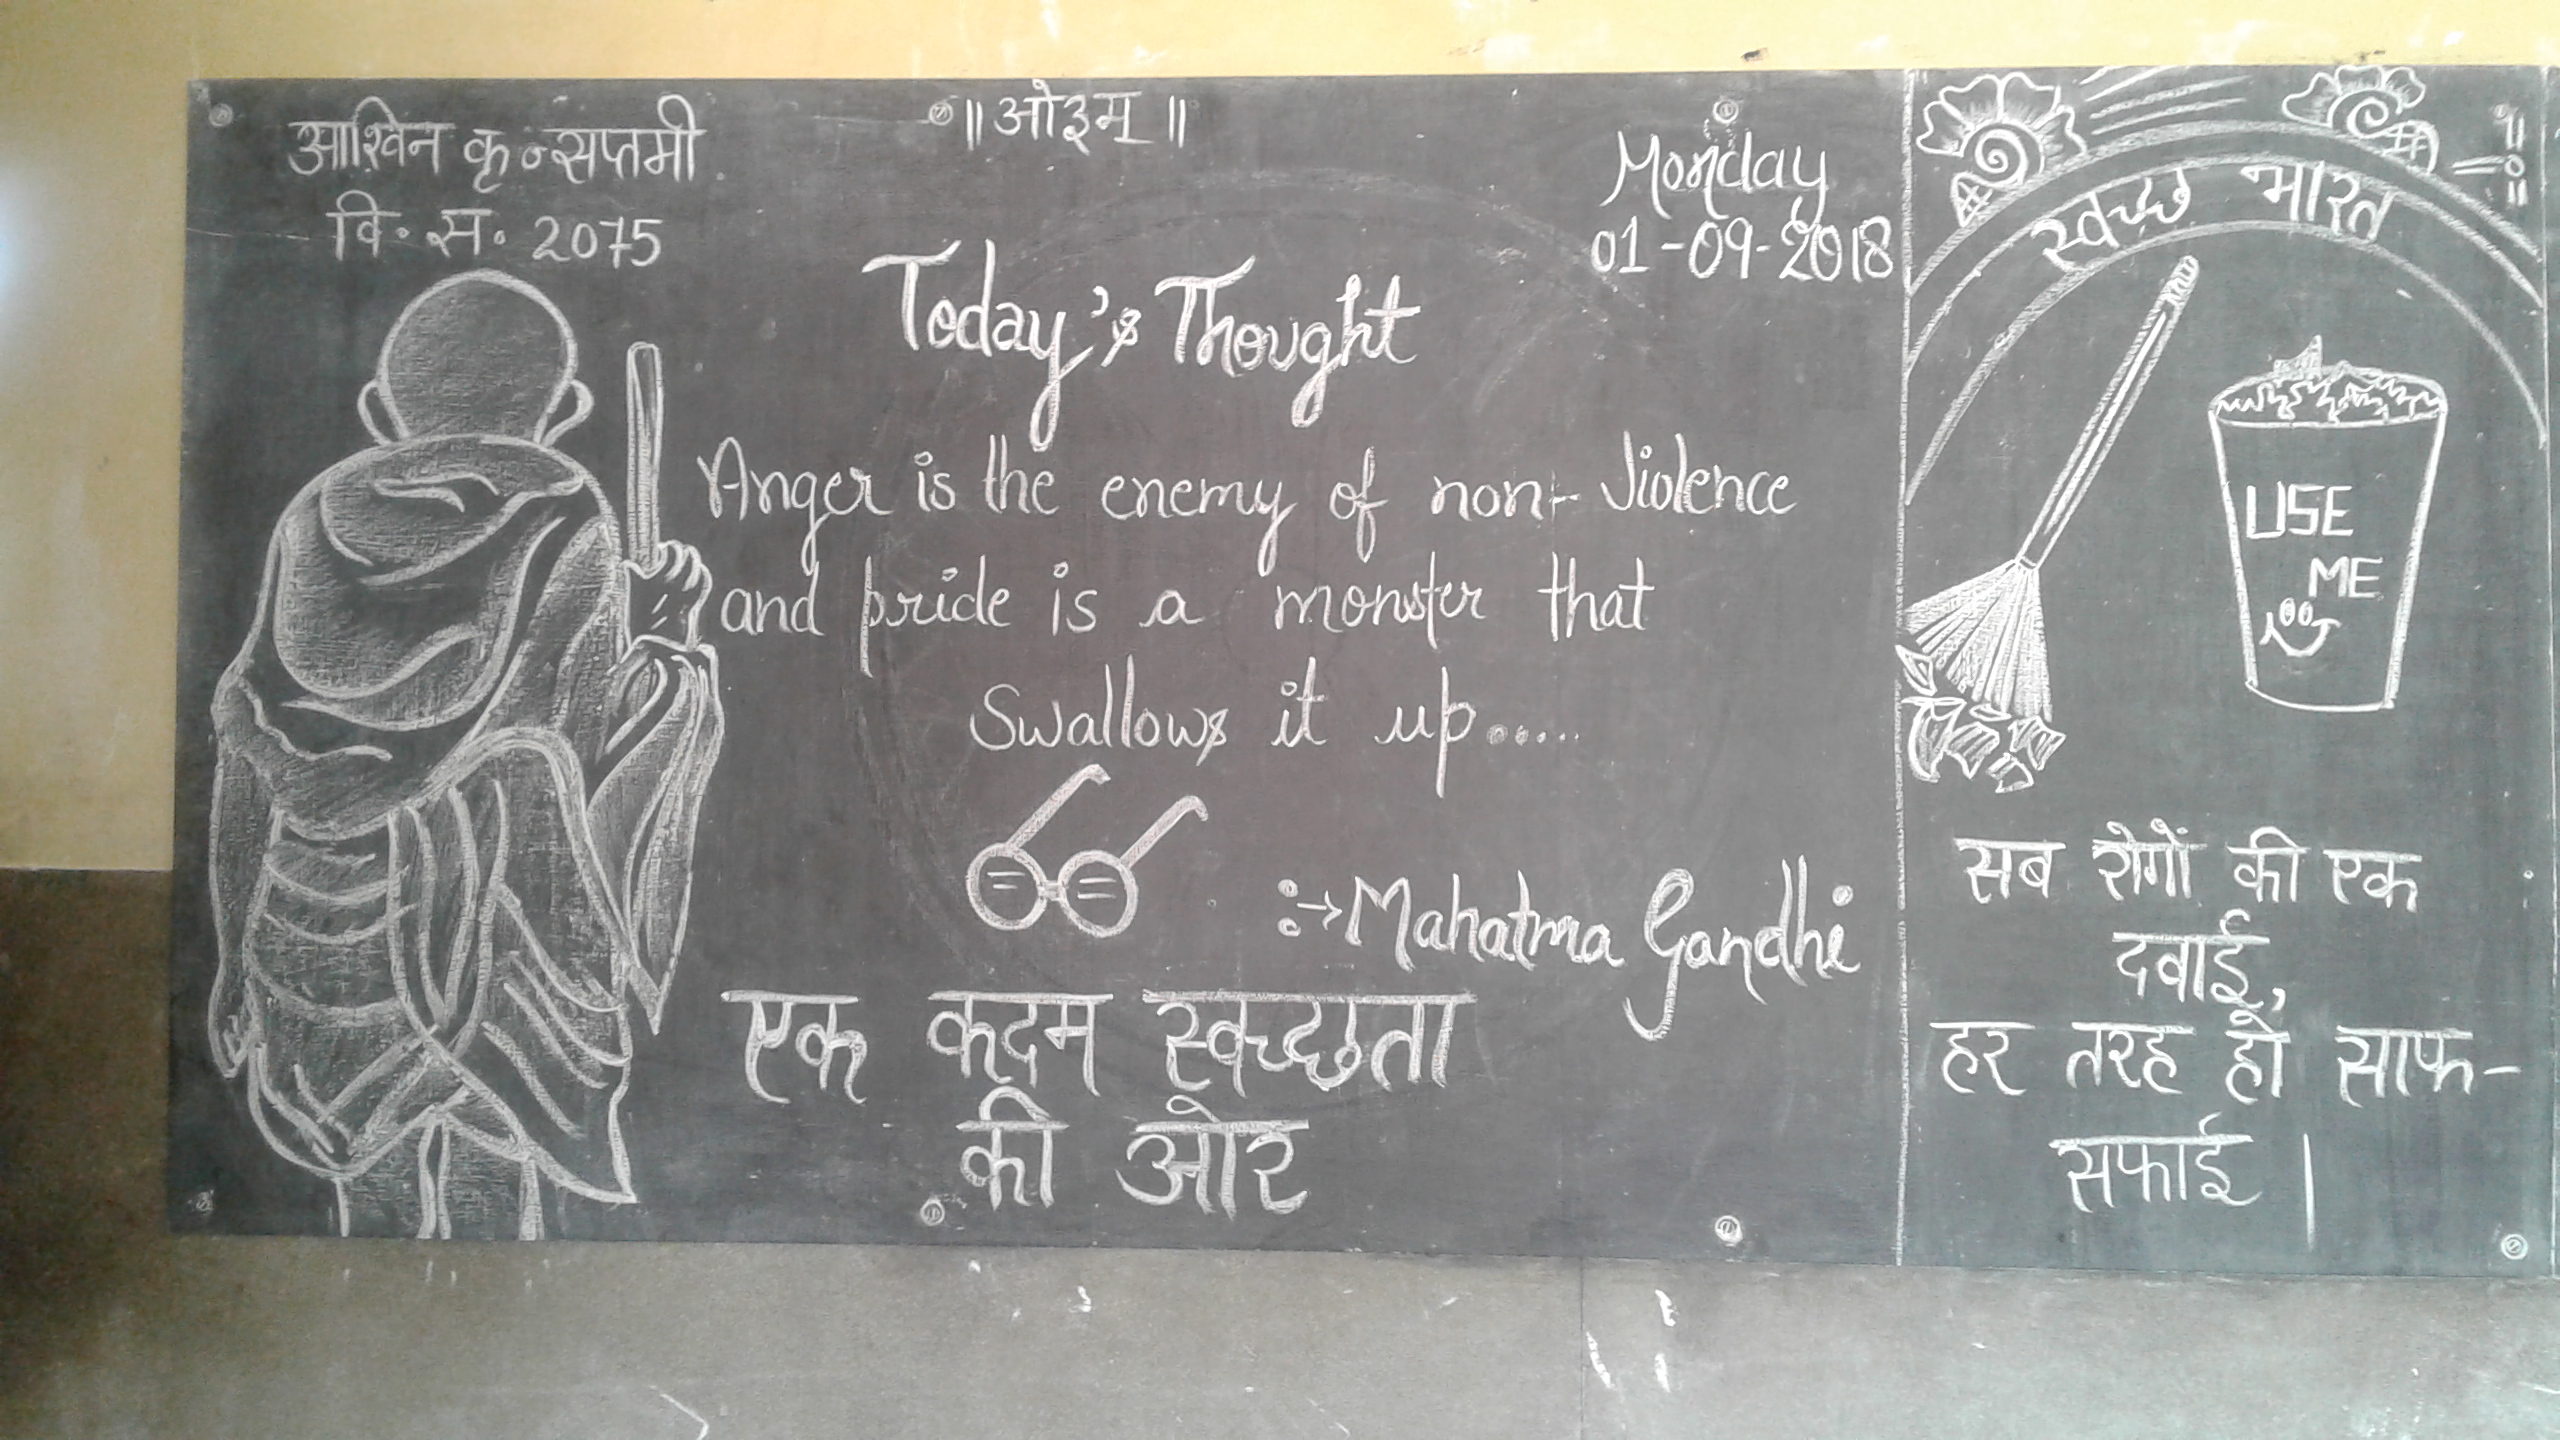 ॥ ओ३म् ॥
आश्विन कृ॰ सप्तमी
वि. स. 2075
Monday
01-09-2018
Today's Thought
Anger is the enemy of non-Violence
and pride is a monster that
Swallows it up.....
:→Mahatma Gandhi
एक कदम स्वच्छता
की ओर
स्वच्छ भारत
USE
ME
सब रोगों की एक
दवाई,
हर तरह हो साफ-
सफाई ।